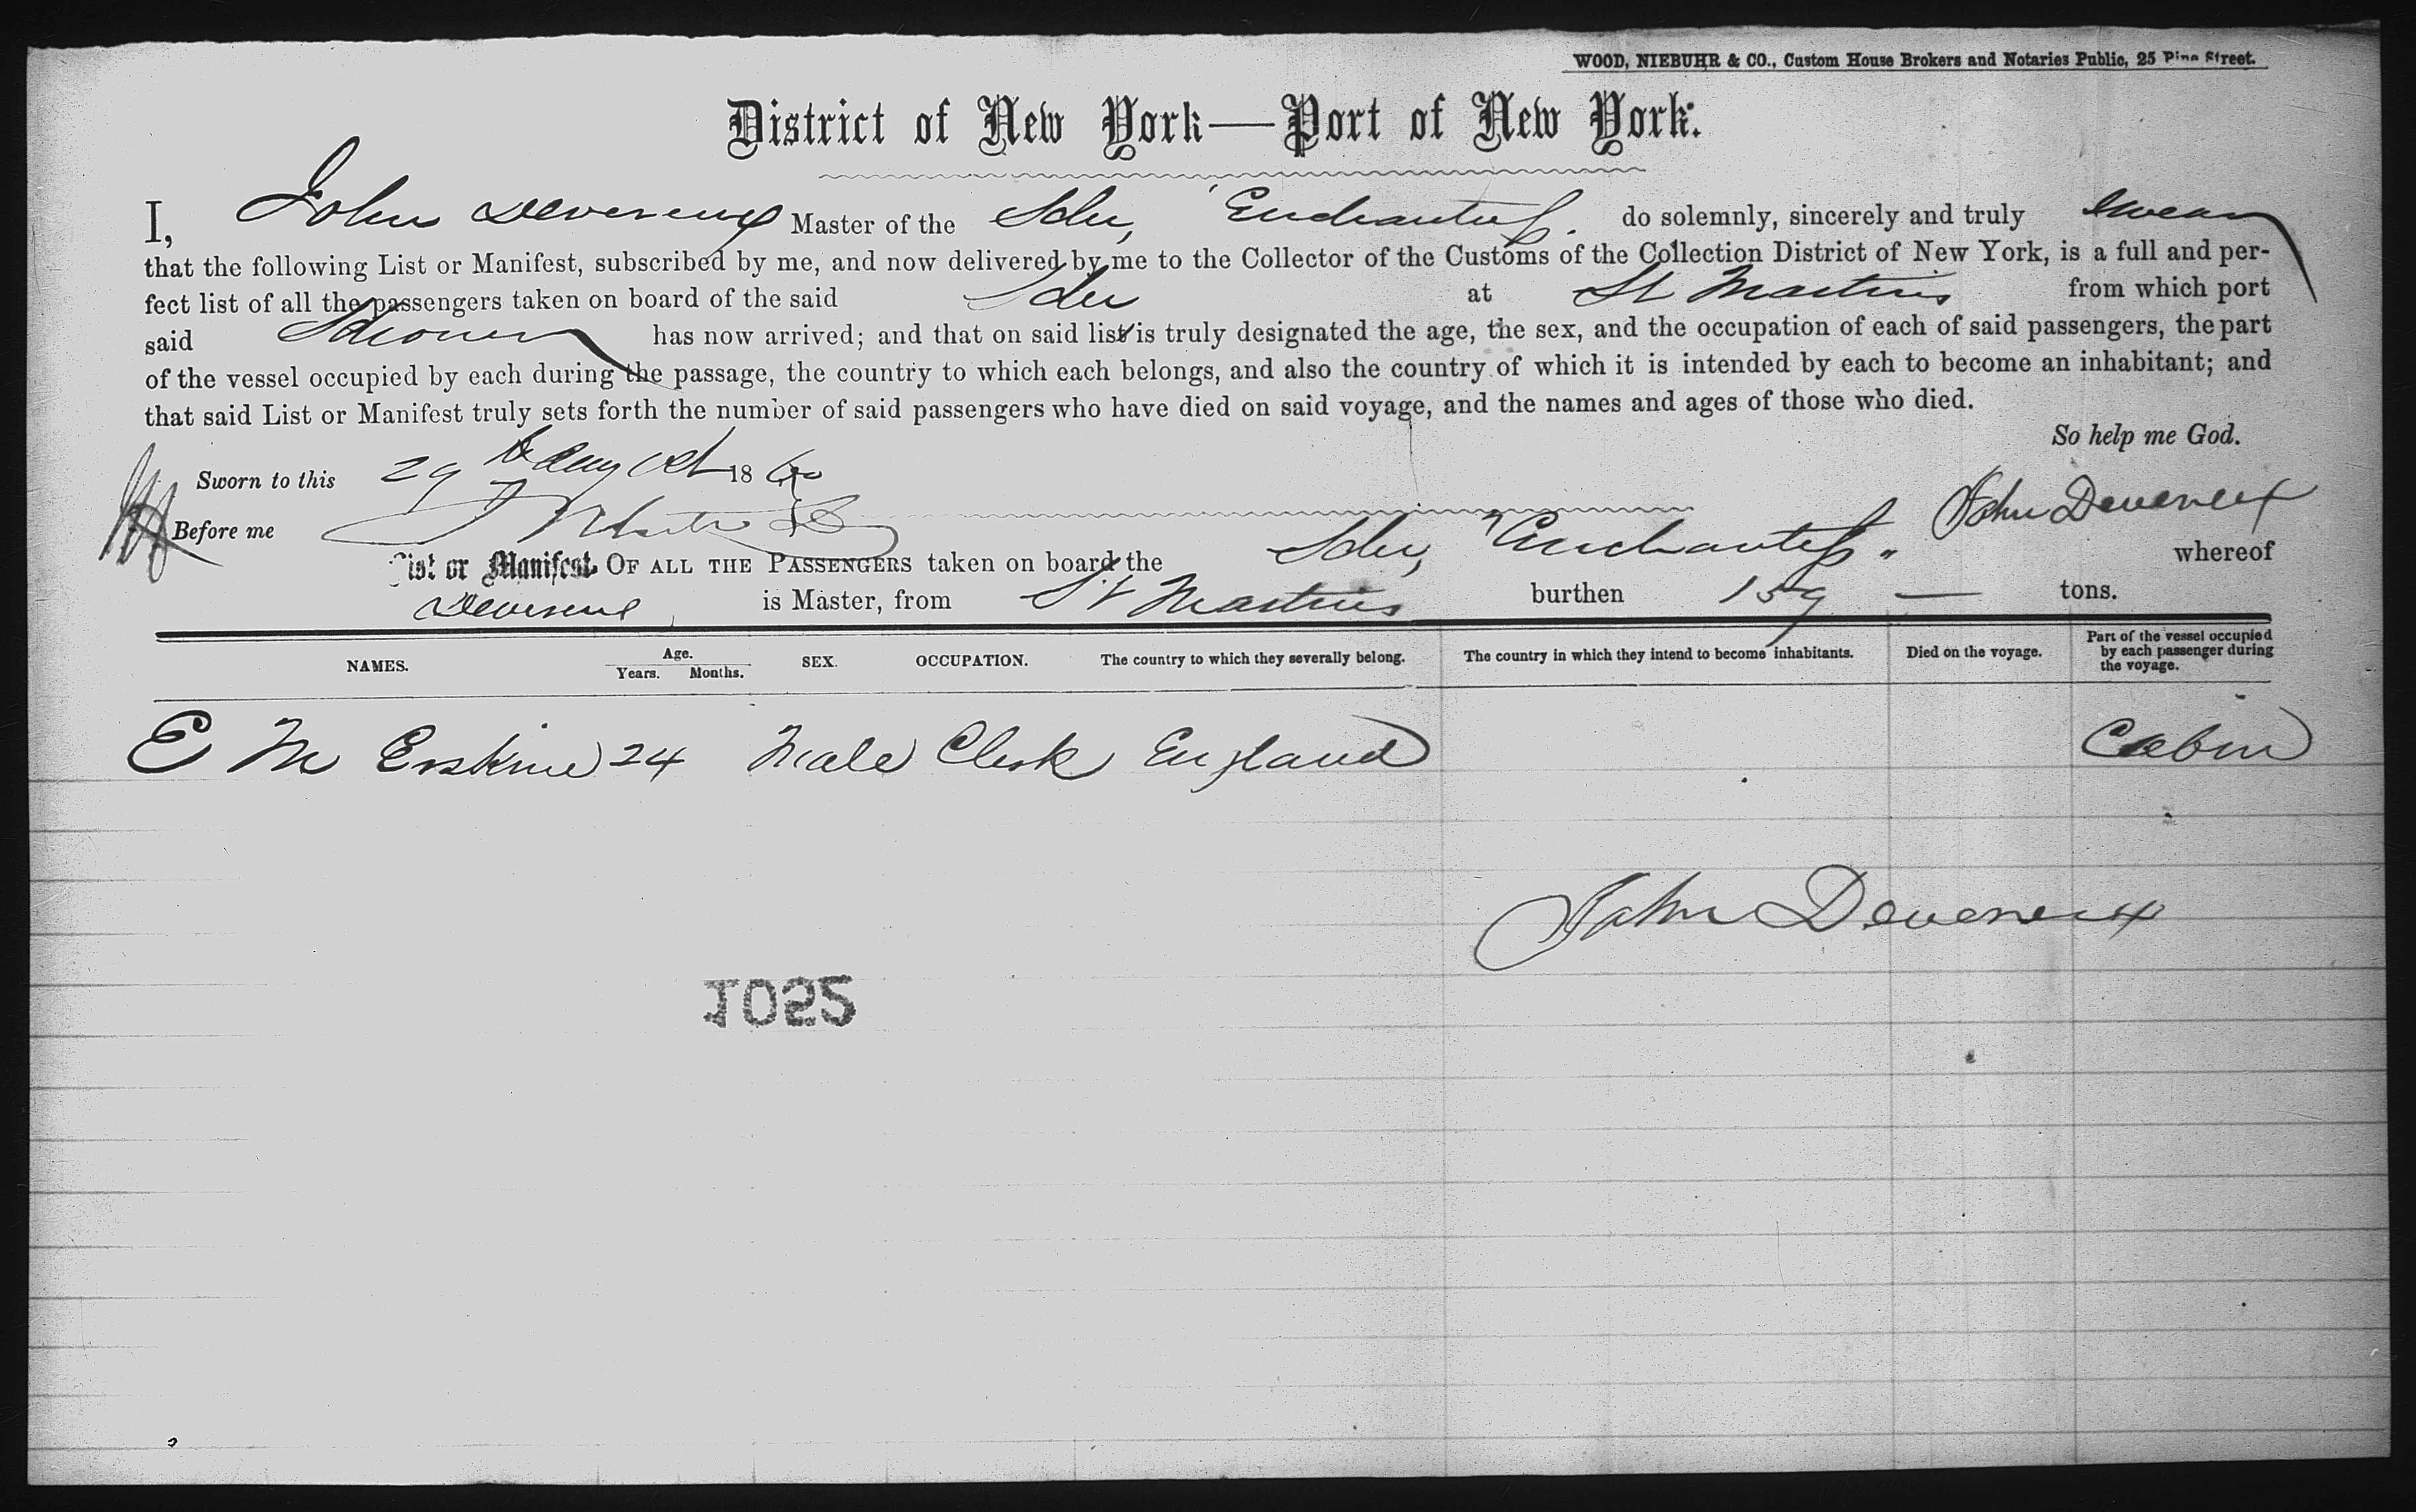 WOOD, NIEBUHR & CO., Custom House Brokers and Notaries Public, 25 Pine Street.
District of New York—Port of New York.
I, John Devereux Master of the Schr, "Enchantress. do solemnly, sincerely and truly swear
that the following List or Manifest, subscribed by me, and now delivered by me to the Collector of the Customs of the Collection District of New York, is a full and per-
fect list of all the passengers taken on board of the said Schr at St Martins from which port
said Schooner has now arrived; and that on said list is truly designated the age, the sex, and the occupation of each of said passengers, the part
of the vessel occupied by each during the passage, the country to which each belongs, and also the country of which it is intended by each to become an inhabitant; and
that said List or Manifest truly sets forth the number of said passengers who have died on said voyage, and the names and ages of those who died.
So help me God.
Sworn to this 29 August 1860
John Devereux
Before me
List or Manifest OF ALL THE PASSENGERS taken on board the Schr, "Enchantress" whereof
Devereux is Master, from St Martins burthen 159 — tons.
NAMES. Age. Years. Months. SEX. OCCUPATION. The country to which they severally belong. The country in which they intend to become inhabitants. Died on the voyage. Part of the vessel occupied by each passenger during the voyage.
E M Erskine 24 Male Clerk England Cabin
John Devereux
1025